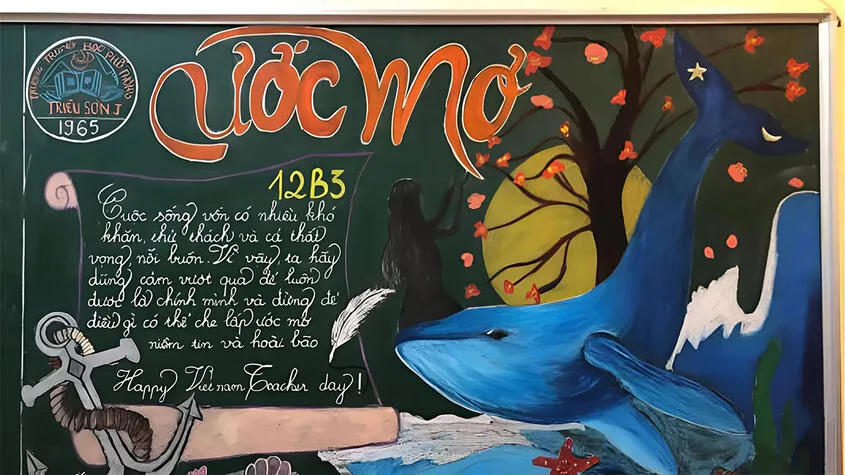 TRƯỜNG TRUNG HỌC PHỔ THÔNG
TRIỆU SƠN I
1965
ƯỚC MƠ
12B3
Cuộc sống vốn có nhiều khó
khăn, thử thách và cả thất
vọng nỗi buồn. Vì vậy, ta hãy
dũng cảm vượt qua để luôn
được là chính mình và đừng để
điều gì có thể che lấp ước mơ
niềm tin và hoài bão
Happy Viet nam Teacher day!